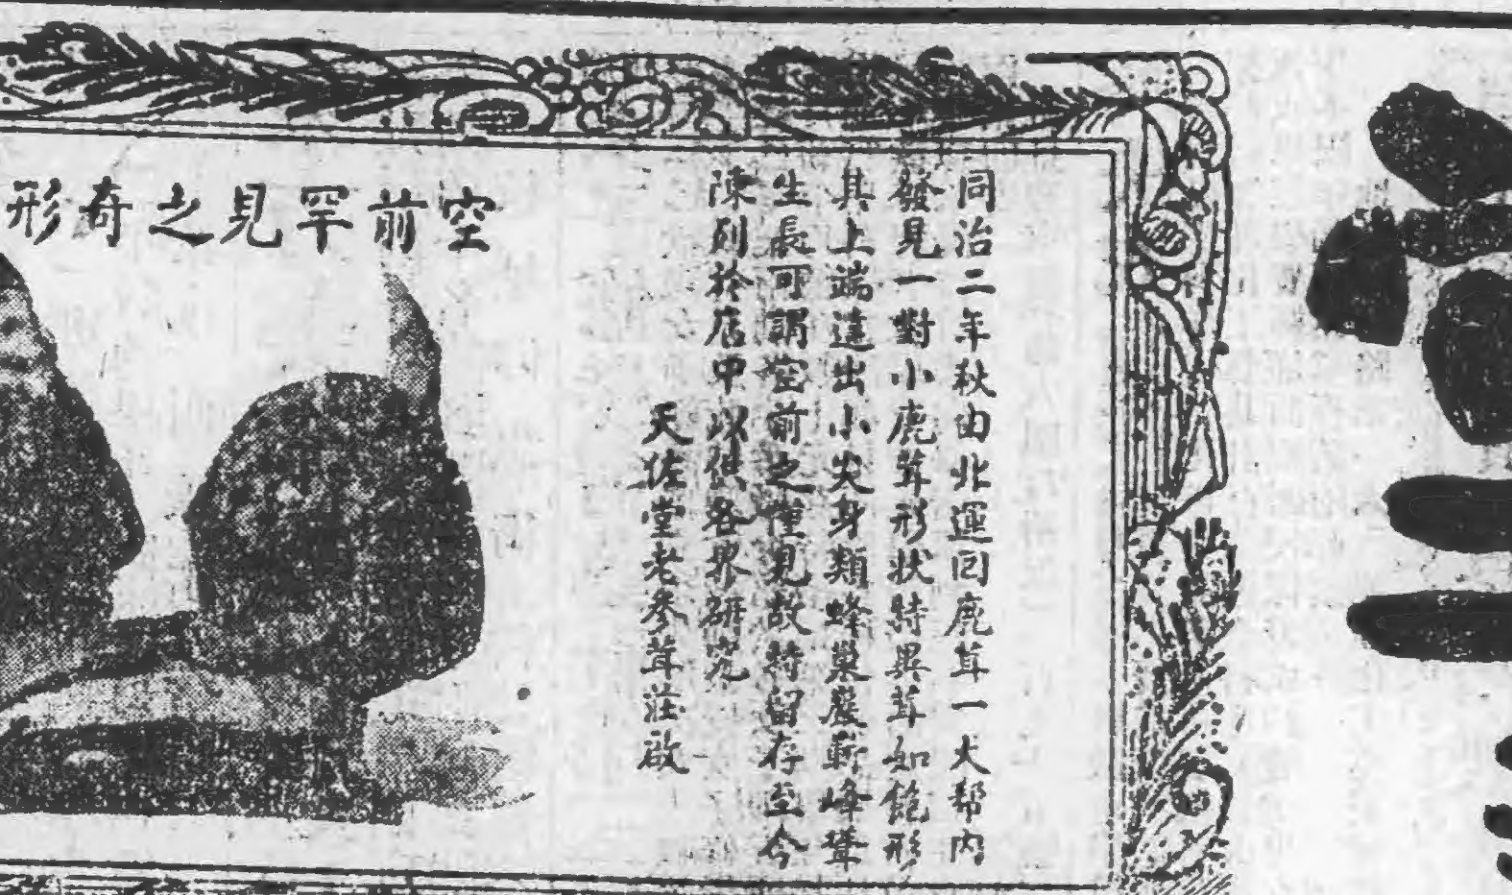 空前罕見之奇形
同治二年秋由北運囘鹿茸一大帮內
發見一對小鹿茸形狀特異茸如鉋形
其上端遠出小尖身類蜂巢嚴嶄峰聳
生長可謂空前之僅見故特留存至今
陳列於店中以供各界硏究
天佐堂老參茸莊啟